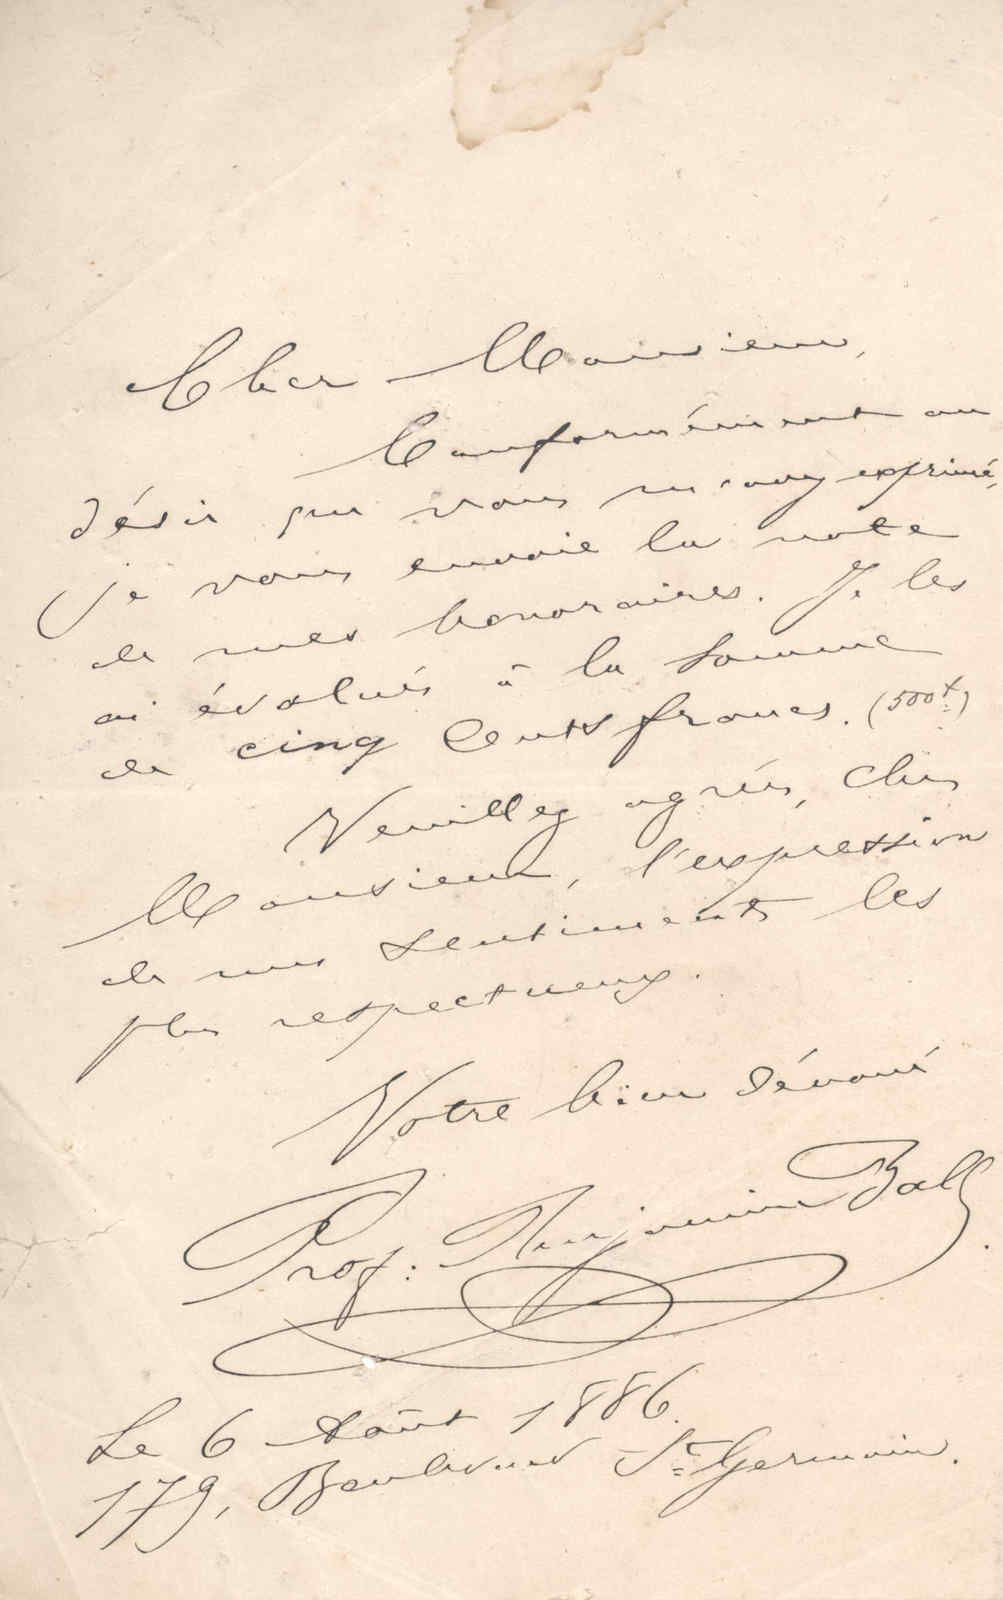 Cher Monsieur,
Conformément au
désir que vous m'avez exprimé,
je vous envoie la note
de mes honoraires. Je les
ai évalués à la somme
de cinq Cents francs. (500f)
Veuillez agréer, Cher
Monsieur, l'expression
de mes sentiments les
plus respectueux.
Votre bien dévoué
Prof: Benjamin Ball.
Le 6 Août 1886.
179, Boulevard St Germain.